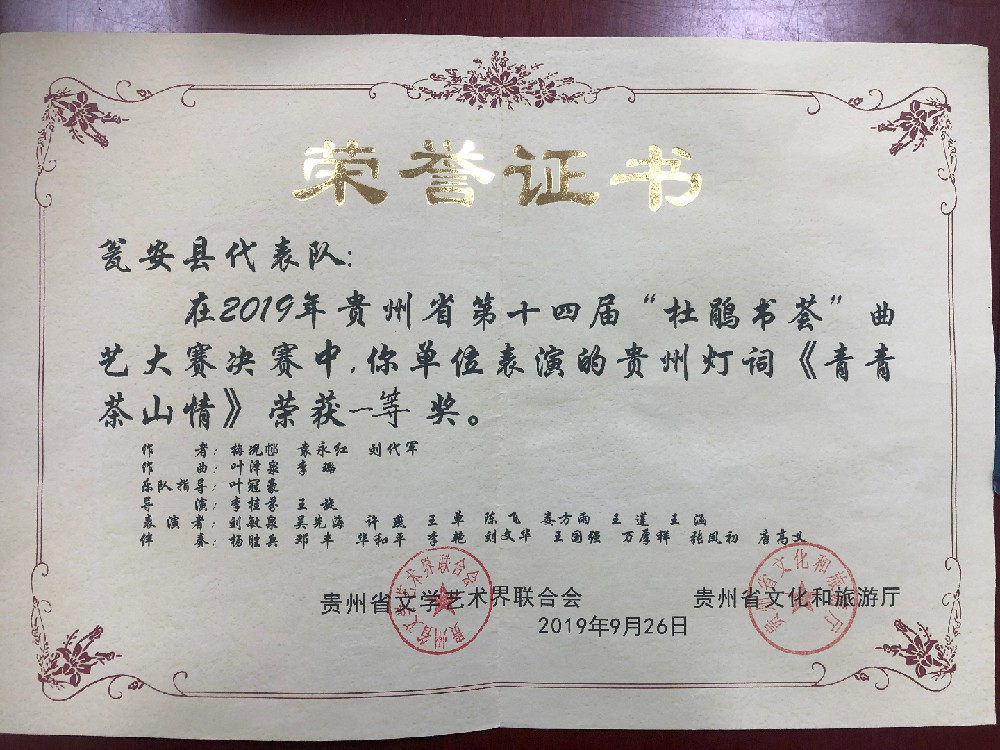 荣誉证书
瓮安县代表队:
在2019年贵州省第十四届“杜鹃书荟”曲
艺大赛决赛中,你单位表演的贵州灯词《青青
茶山情》荣获一等奖。
作者: 袁永红 刘代军
作曲:叶泽泉 李璐
乐队指导:叶冠豪
导演:李桂芬 王旋
表演者:刘敏泉 吴先海 许燕 王单 陈飞 娄方雨 王莲 王涵
伴奏:杨胜兵 邓丰 华和平 李艳 刘文华 王国强 万厚祥 张凤初 唐高文
贵州省文学艺术界联合会 贵州省文化和旅游厅
2019年9月26日